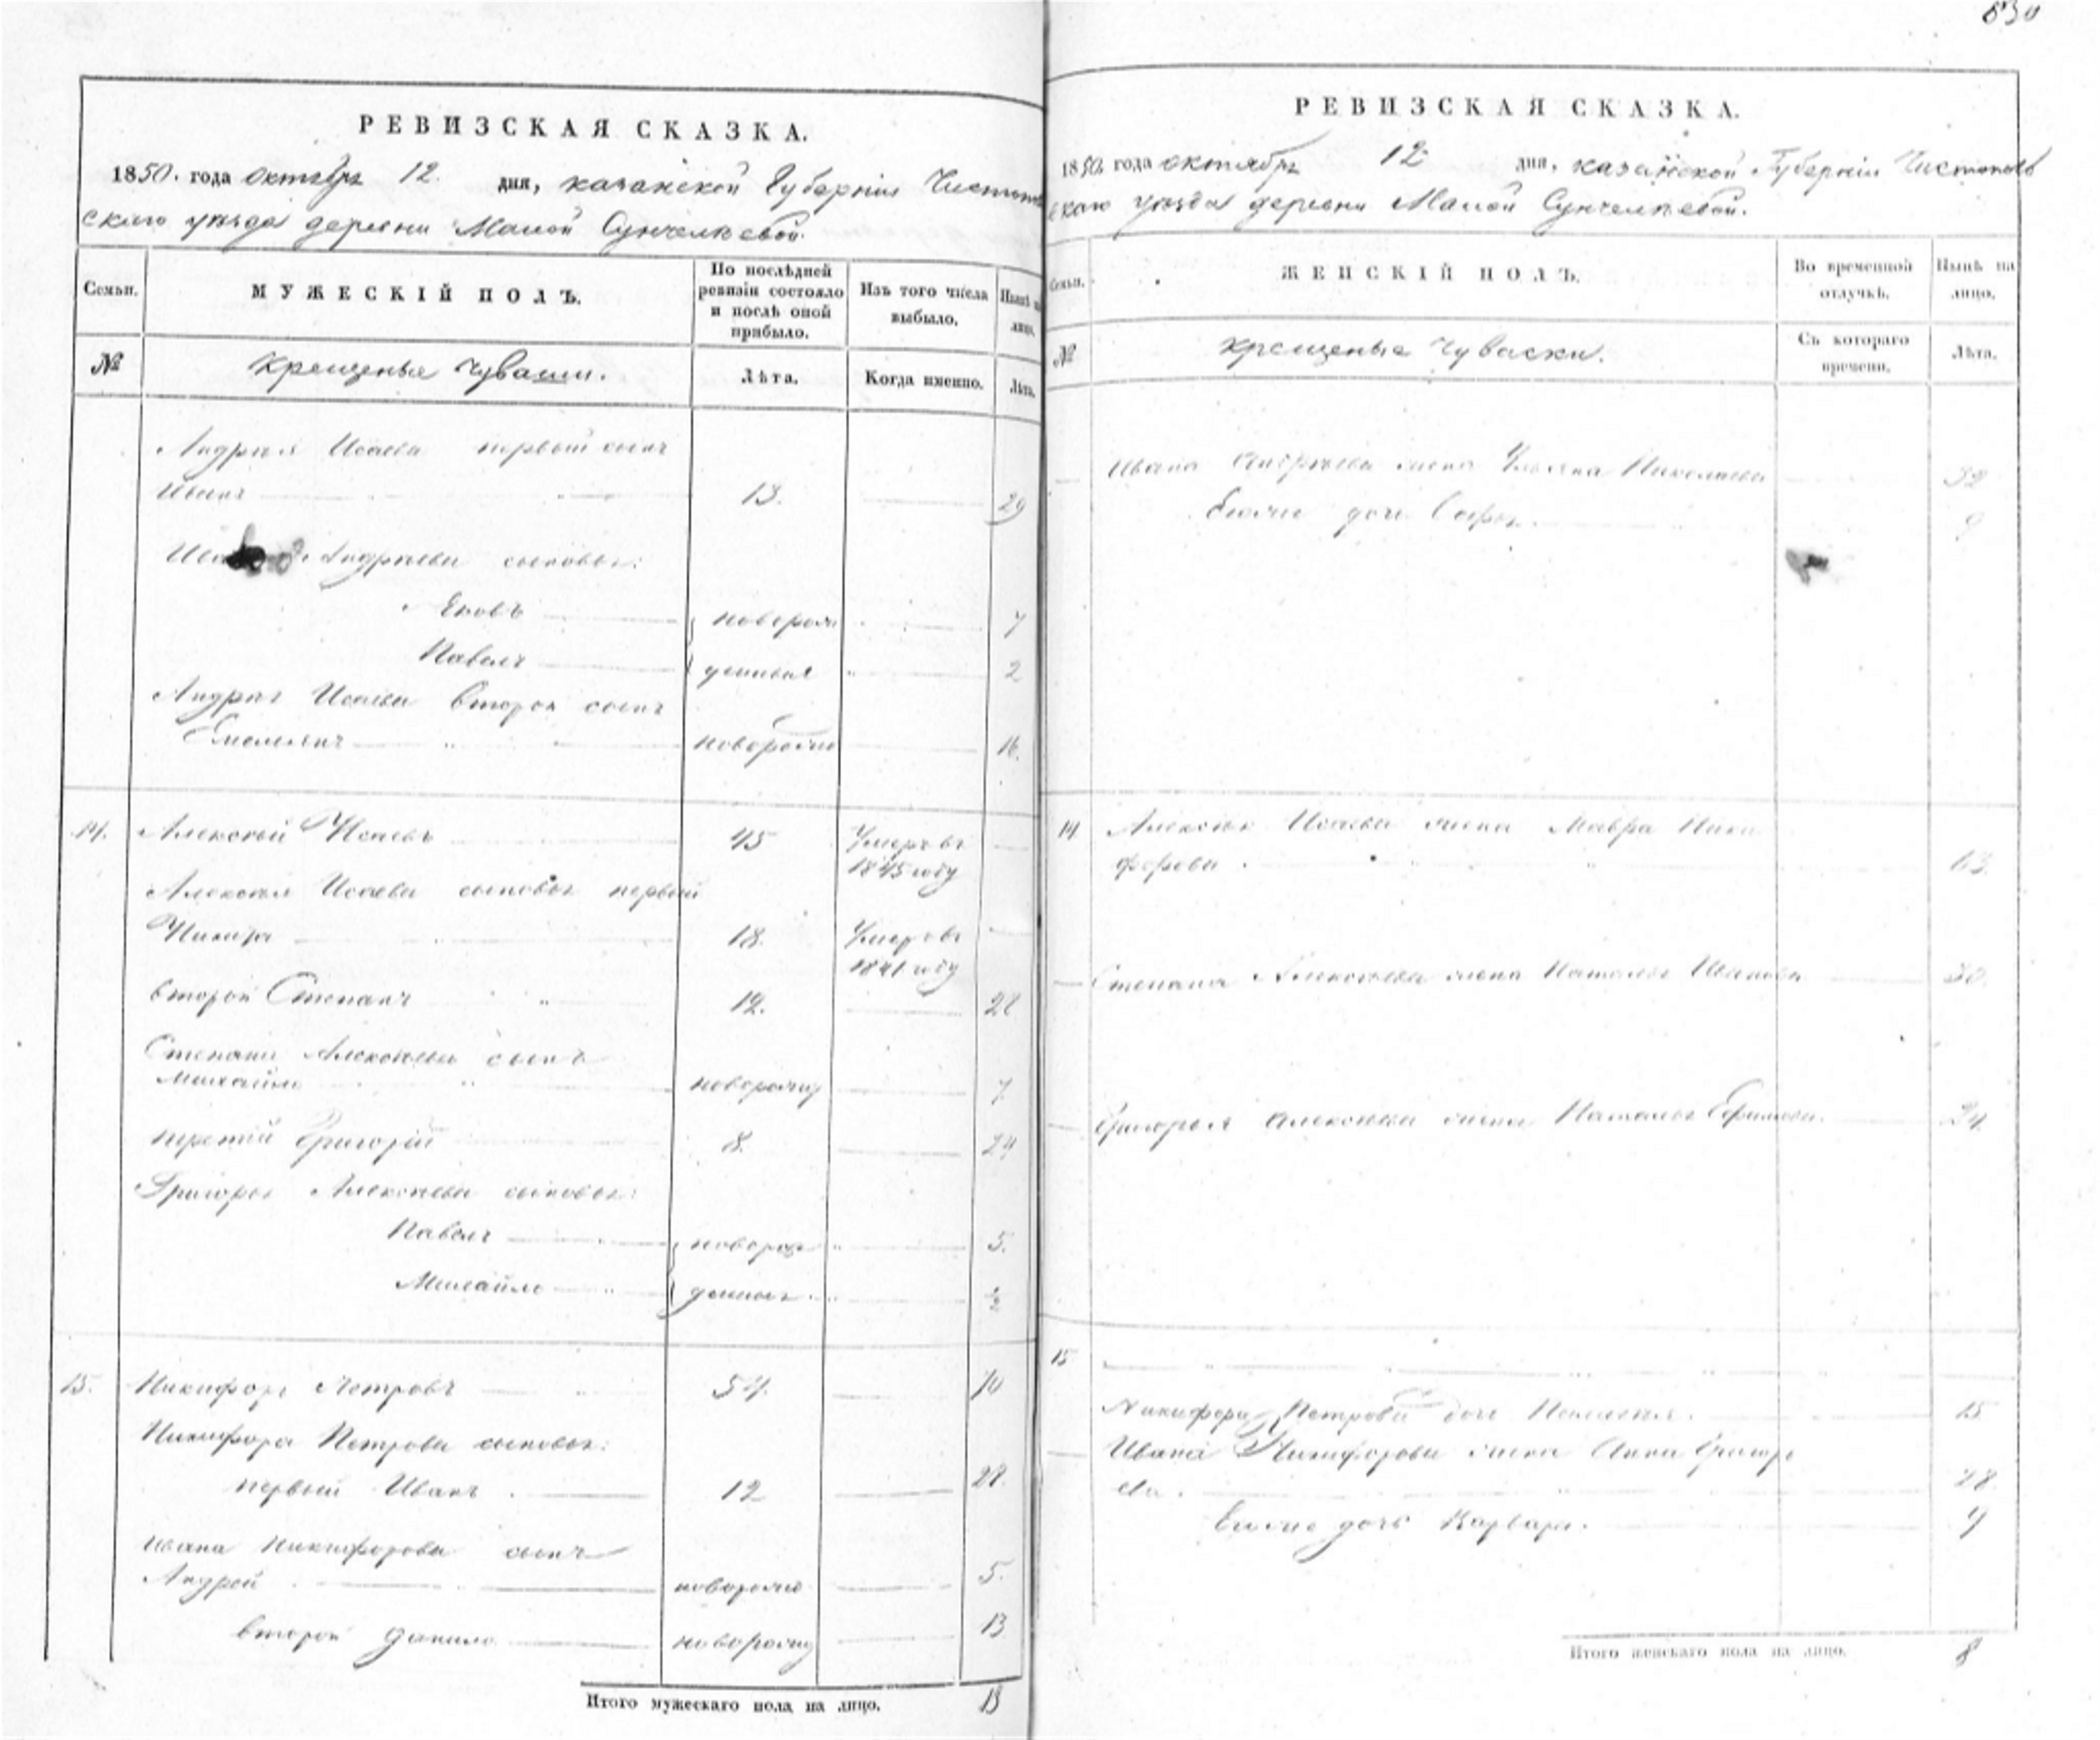 830
РЕВИЗСКАЯ СКАЗКА.
1850. года октября 12. дня, казанской Губернiи Чистополь
скаго уѣзда деревни Малой Сунчелѣевой.
Семьи.
МУЖЕСКІЙ ПОЛЪ.
По послѣдней ревизіи состояло и послѣ оной прибыло.
Изъ того числа выбыло.
Нынѣ на лицо.
№
крещеные чуваши.
Лѣта.
Когда именно.
Лѣта.
Андрея Исаева первый сынъ
Иванъ 13. 29
Андрѣева сыновья:
Яковъ новорож 7
Павелъ денныя 2
Андрея Исаева второй сынъ
Емельянъ новорожд 16.
14. Алексѣй Исаевъ 45 Умеръ въ
1845 году
Алексѣя Исаева сыновья первый
18. Умеръ въ
году
второй Степанъ 12. 28
Степана Алексѣева сынъ
Михайло новорожд 7
третій Григорій 8. 24
Григорья Алексѣева сыновья:
Павелъ новорож 5.
Михайло денныя ½
15. Никифоръ Петровъ 54. 70
Никифора Петрова сыновья:
первый Иванъ 12 28.
Ивана Никифорова сынъ
Андрей новорожд 5.
второй Данило новорожд 13
Итого мужескаго пола на лицо. 13
РЕВИЗСКАЯ СКАЗКА.
1850. года октября 12 дня, казанской Губернiи Чистополь
скаго уѣзда деревни Малой Сунчелѣевой.
Семьи.
ЖЕНСКІЙ ПОЛЪ.
Во временной отлучкѣ.
Нынѣ на лицо.
№
крещеные чуваски.
Съ котораго времени.
Лѣта.
Ивана Андрѣева жена Ульяна Николаева 32
дочь 9
14 Алексѣя Исаева жена Мавра Ники
форова 63.
Степана Алексѣева жена Наталья Иванова 30.
Григорья Алексѣева жена Наталья Ефимова. 24.
15
Никифора Петрова дочь Пелагея. 15
Ивана Никифорова жена Анна Григорь
ева. 28.
Ево же дочь Варвара. 4
Итого женскаго пола на лицо. 8